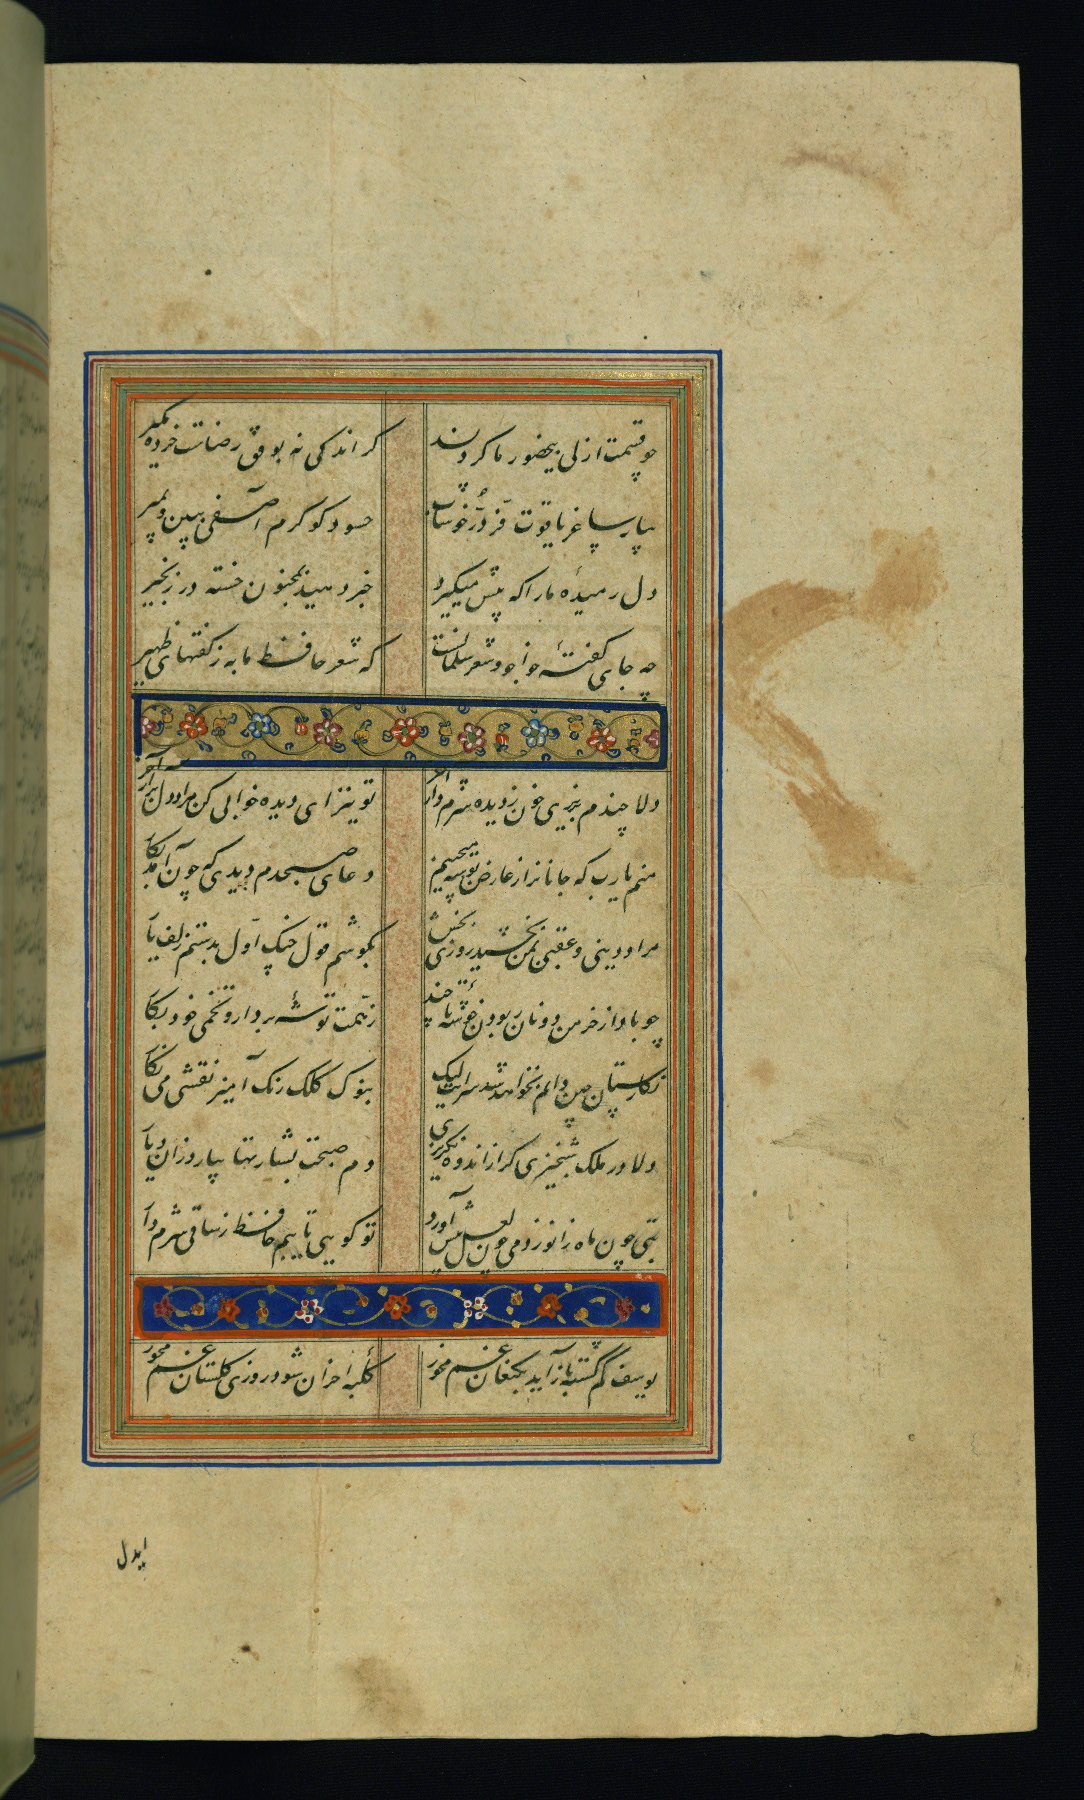 چو قسمت ازلی بیحضور ما کردند
کر اندکی نه بوفق رضاست خرده مکیر
بیار ساغر یاقوت فز درّ خوشاب
حسود کو کرم آصفی ببین و بمیر
دل رمیدهٔ ما را که پیش میکیرد
خبر دهید بمجنون خسته در زنجیر
چه جای کفتهٔ خواجو و شعر سلمانست
که شعر حافظ ما به ز کفتهای ظهیر
دلا چندم بریزی خون ز دیده شرم دار آخر
تو نیز ای دیده خوابی کن مراد دل برار آخر
منم یارب که جانانرا ز عارض بوسه میچینم
دعای صبحدم دیدی که چون آمد بکار
مراد دینی و عقبی بمن بخشید روزی بخش
بکوشم قول چنک اول بدستم زلف یار
چو باد از خرمن دونان ربودن خوشهٔ تا چند
ز همت توشهٔ بردار و تخمی خود بکار
نکارستان چین دانم نخواهد شد سرایت لیک
بنوک کلک رنک آمیز نقشی می نکار
دلا در ملک شبخیزی کر از اندوه نکریزی
دم صبحت بشارتها بیارد زان دیار
بتی چون ماه زانو زد می چون لعل پیش آورد
تو کویی تاییم حافظ ز ساقی شرم دار
یوسف کم کشته باز آید بکنعان غم مخور
کلبهٔ احزان شود روزی کلستان غم مخور
ایدل